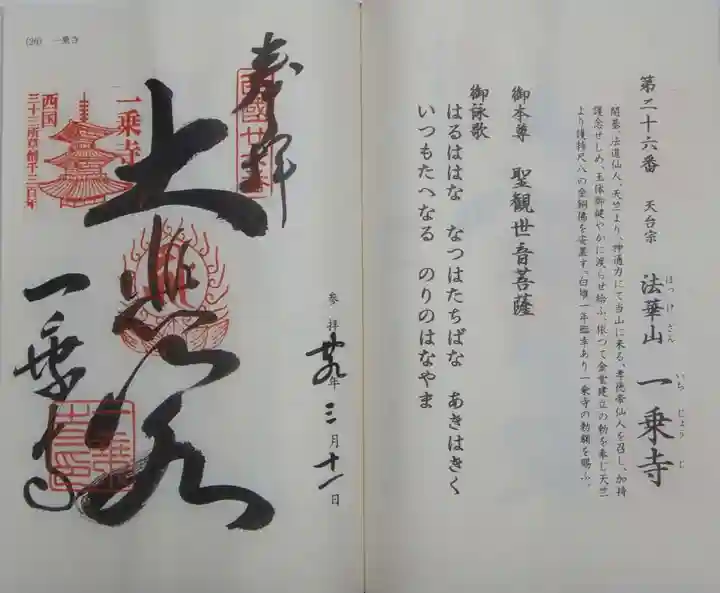 第二十六番 天台宗 法華山 一乗寺
ほっけさん いちじょうじ
開基、法道仙人、天竺より、神通力にて当山に来る、孝徳帝仙人を召し、加持
護念せしめ、玉体御健やかに渡らせ給ふ、依つて金堂建立の勅を奉じ天竺
より護持尺八の金銅佛を安置す。白雉一年臨幸あり一乗寺の勅額を賜ふ。
御本尊 聖観世音菩薩
御詠歌
はるははな なつはたちばな あきはきく
いつもたへなる のりのはなやま
(26) 一乗寺
奉拝
西國廿六番
参拝 廿九年 三月十一日
大悲閣
一乗寺
西国
三十三所草創千三百年
一乗寺